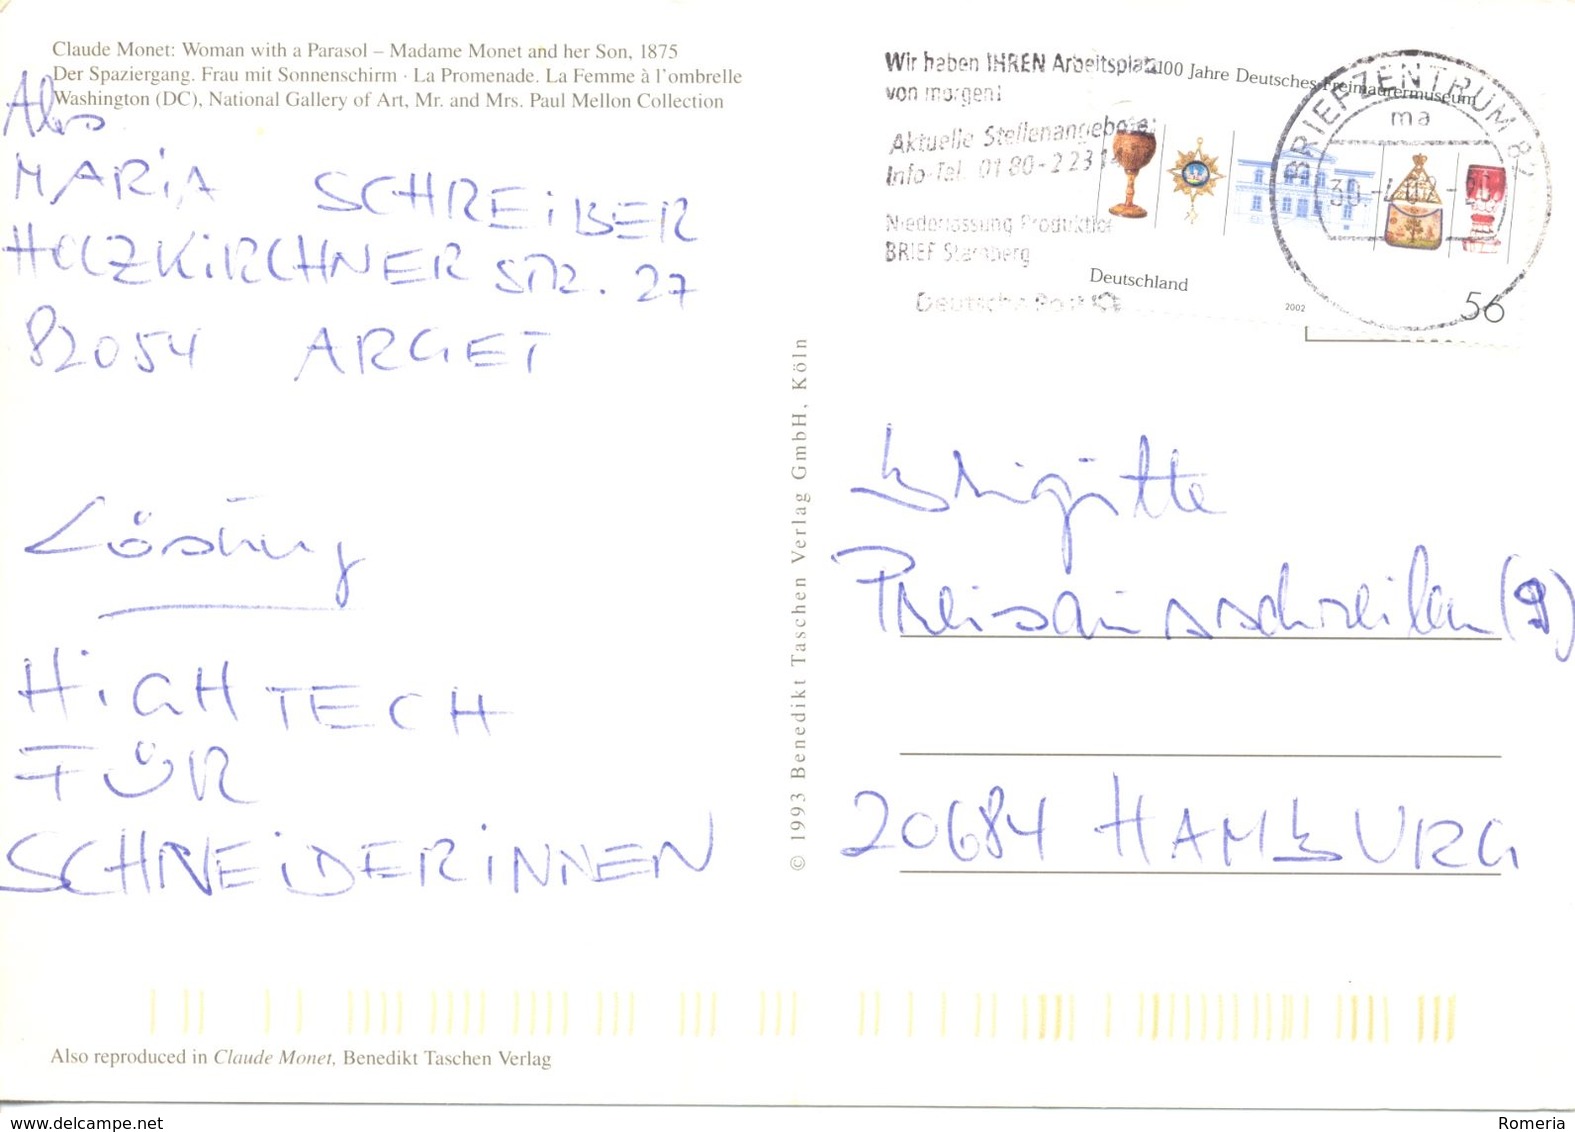 Claude Monet: Woman with a Parasol – Madame Monet and her Son, 1875
Der Spaziergang. Frau mit Sonnenschirm · La Promenade. La Femme à l'ombrelle
Washington (DC), National Gallery of Art, Mr. and Mrs. Paul Mellon Collection
Abs
MARiA SCHREiBER
HOLZKiRCHNER STR. 27
82054 ARGET
Lösung
HiGH TECH
FÜR
SCHNEiDERiNNEN
Also reproduced in Claude Monet, Benedikt Taschen Verlag
© 1993 Benedikt Taschen Verlag GmbH, Köln
Wir haben IHREN Arbeitsplatz
von morgen!
Aktuelle Stellenangebote:
Info-Tel. 0180-2231
Niederlassung Produktion
BRIEF Starnberg
Deutsche Post
100 Jahre Deutsches Freimaurermuseum
Deutschland
2002
56
BRIEFZENTRUM 82
ma
Brigitte
Preisausschreiben (9)
20684 HAMBURG
www.delcampe.net
Romeria